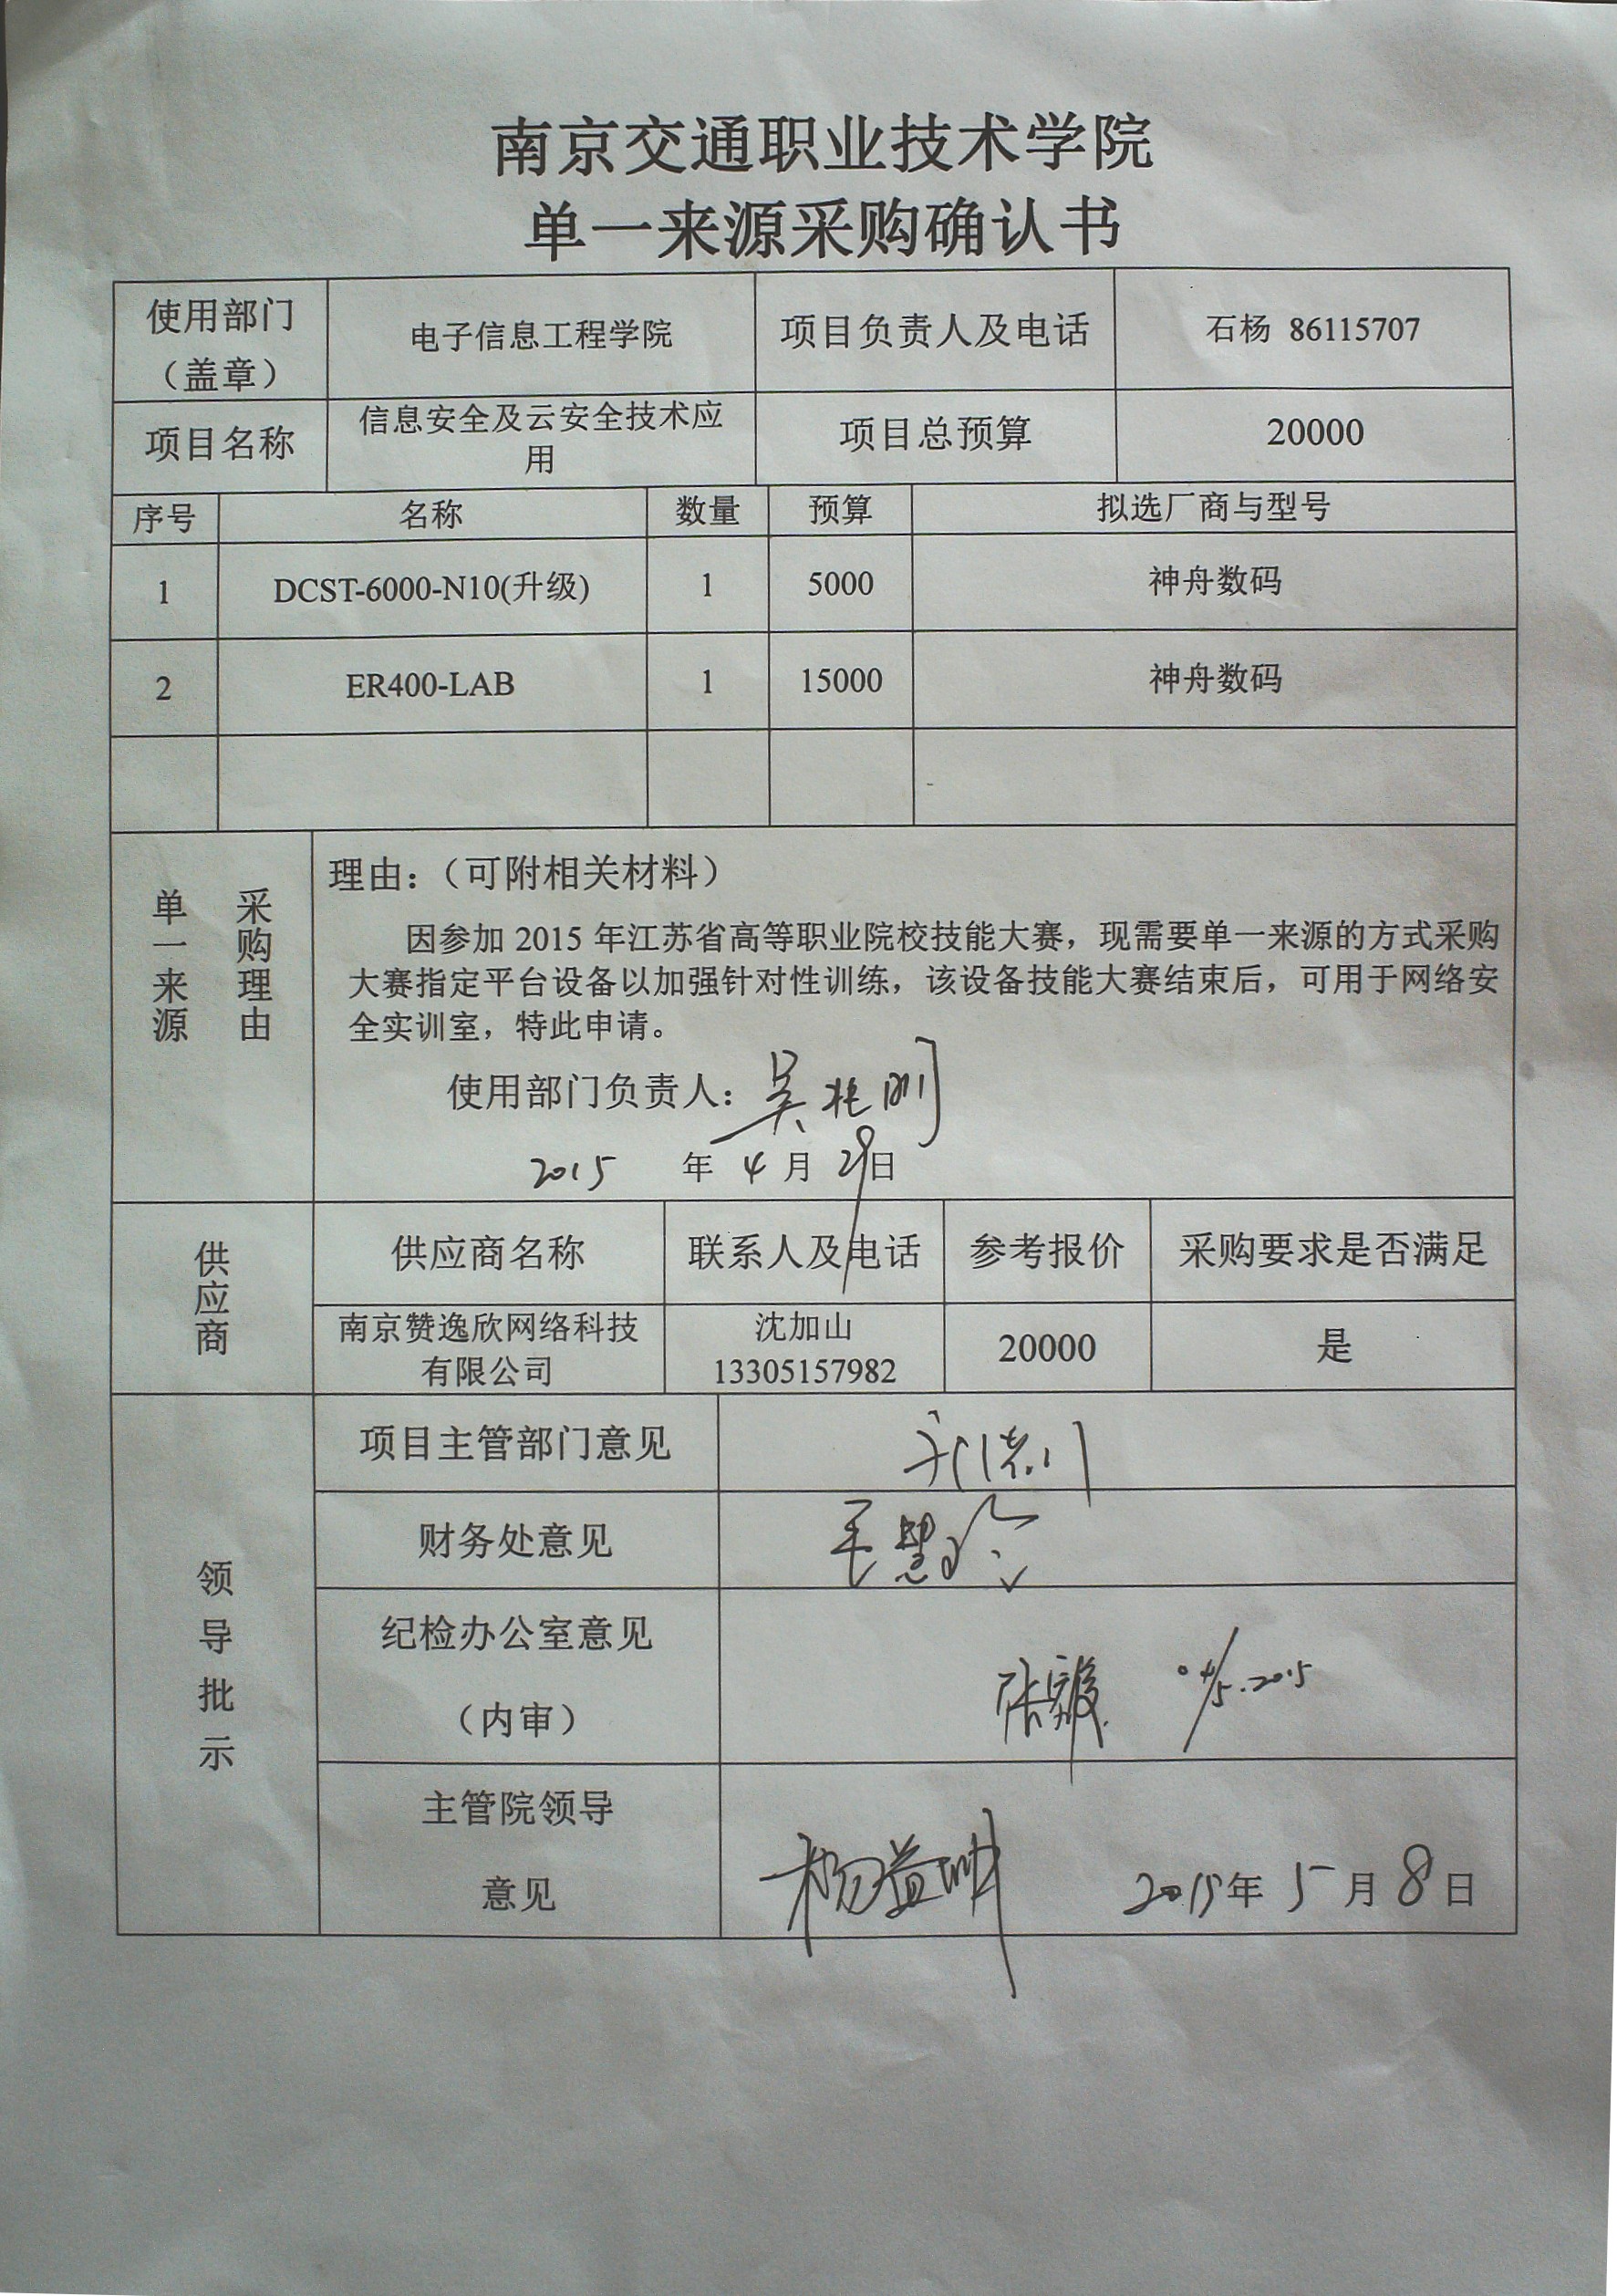 南京交通职业技术学院
单一来源采购确认书
使用部门
（盖章）
电子信息工程学院
项目负责人及电话
石杨 86115707
项目名称
信息安全及云安全技术应
用
项目总预算
20000
序号
名称
数量
预算
拟选厂商与型号
1
DCST-6000-N10(升级)
1
5000
神舟数码
2
ER400-LAB
1
15000
神舟数码
单一来源
采购理由
理由：（可附相关材料）
因参加 2015 年江苏省高等职业院校技能大赛，现需要单一来源的方式采购
大赛指定平台设备以加强针对性训练，该设备技能大赛结束后，可用于网络安
全实训室，特此申请。
使用部门负责人：吴兆明
2015 年 4 月 29日
供应商
供应商名称
联系人及电话
参考报价
采购要求是否满足
南京赞逸欣网络科技
有限公司
沈加山
13305157982
20000
是
领导批示
项目主管部门意见
财务处意见
纪检办公室意见
（内审）
主管院领导
意见
杨益明
2015年 5 月 8 日